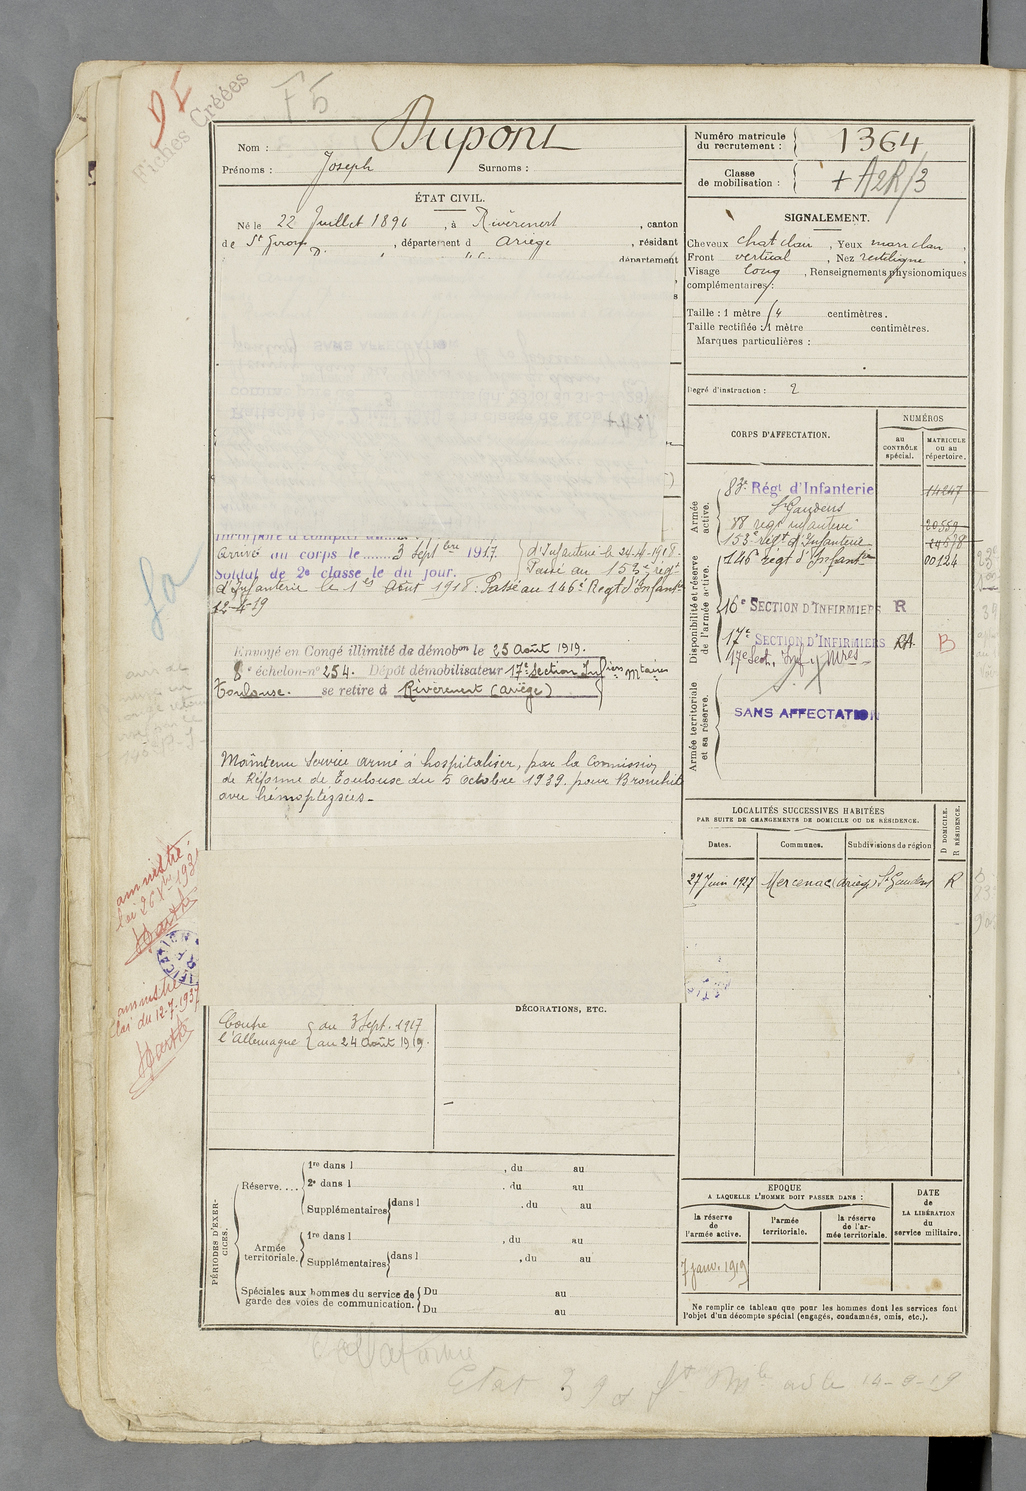 DI
Fiches Créées
F5
Nom : Dupont
Prénoms : Joseph Surnoms :
Numéro matricule du recrutement : 1364
Classe de mobilisation : + A2R/3
ÉTAT CIVIL.
Né le 22 Juillet 1896, à Rivèrenert, canton
de St Girons, département d Ariège, résidant
département
SIGNALEMENT.
Cheveux chat clair, Yeux marr clair,
Front vertical, Nez rectiligne,
Visage long, Renseignements physionomiques
complémentaires :
Taille : 1 mètre centimètres.
Taille rectifiée : 1 mètre centimètres.
Marques particulières :
Degré d'instruction : 2
CORPS D'AFFECTATION.
NUMÉROS
au CONTRÔLE spécial.
MATRICULE ou au répertoire.
Armée active.
83e Régt d'Infanterie 14247
St Gaudens
régt infanterie 20559
153e régt d'Infanterie
146 régt d'Infantie 00124
Disponibilité et réserve de l'armée active.
16e SECTION D'INFIRMIERS R
17e SECTION D'INFIRMIERS RA B
17e Sect. Inf. Mres
Armée territoriale et sa réserve.
SANS AFFECTATION
Incorporé à compter du
Arrivé au corps le 3 Septbre 1917.
Soldat de 2e classe le dit jour.
d'Infanterie le 24-4-1918.
Passé au 153e régt
d'Infanterie le 1er Août 1918. Passé au 146e Régt d'Infantie
12-4-19
Envoyé en Congé illimité de démobon le 25 Août 1919.
8e échelon-no 254. Dépôt démobilisateur 17e Section Infiers Mtaires
Toulouse. se retire à Rivèrenert (Ariège)
Maintenu Service armé à hospitaliser, par la Commission
de Réforme de Toulouse du 5 Octobre 1939. pour Bronchite
avec hémoptysies.
LOCALITÉS SUCCESSIVES HABITÉES
PAR SUITE DE CHANGEMENTS DE DOMICILE OU DE RÉSIDENCE.
Dates. Communes. Subdivisions de région
D DOMICILE. R RÉSIDENCE.
27 Juin 1927 Mercenac (Ariège) St Gaudens R
amnistié
amnistié
loi du 12-7-1937
DÉCORATIONS, ETC.
Contre l'Allemagne
du 3 Sept. 1917
au 24 Août 1919.
PÉRIODES D'EXERCICES.
Réserve....
1re dans l , du au
2e dans l , du au
Supplémentaires dans l , du au
Armée territoriale.
1re dans l , du au
Supplémentaires dans l , du au
Spéciales aux hommes du service de garde des voies de communication.
Du au
Du au
EPOQUE
A LAQUELLE L'HOMME DOIT PASSER DANS :
la réserve de l'armée active.
l'armée territoriale.
la réserve de l'armée territoriale.
DATE de LA LIBÉRATION du service militaire.
7 janv. 1919
Ne remplir ce tableau que pour les hommes dont les services font
l'objet d'un décompte spécial (engagés, condamnés, omis, etc.).